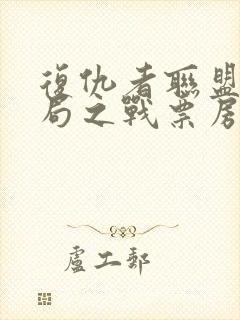 復仇者聯盟
局之戰票房
盧工郵